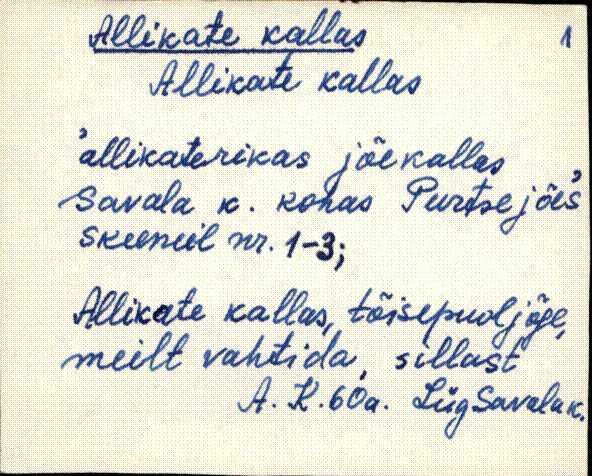 Allikate kallas 1
Allikate kallas
'allikaterikas jõekallas
Savala k. kohas Purtse jões'
Skeemil nr. 1-3;
Allikate kallas, tõisepuol jõge,
meilt vahtida, sillast
A. K. 60a. Lüg Savala k.